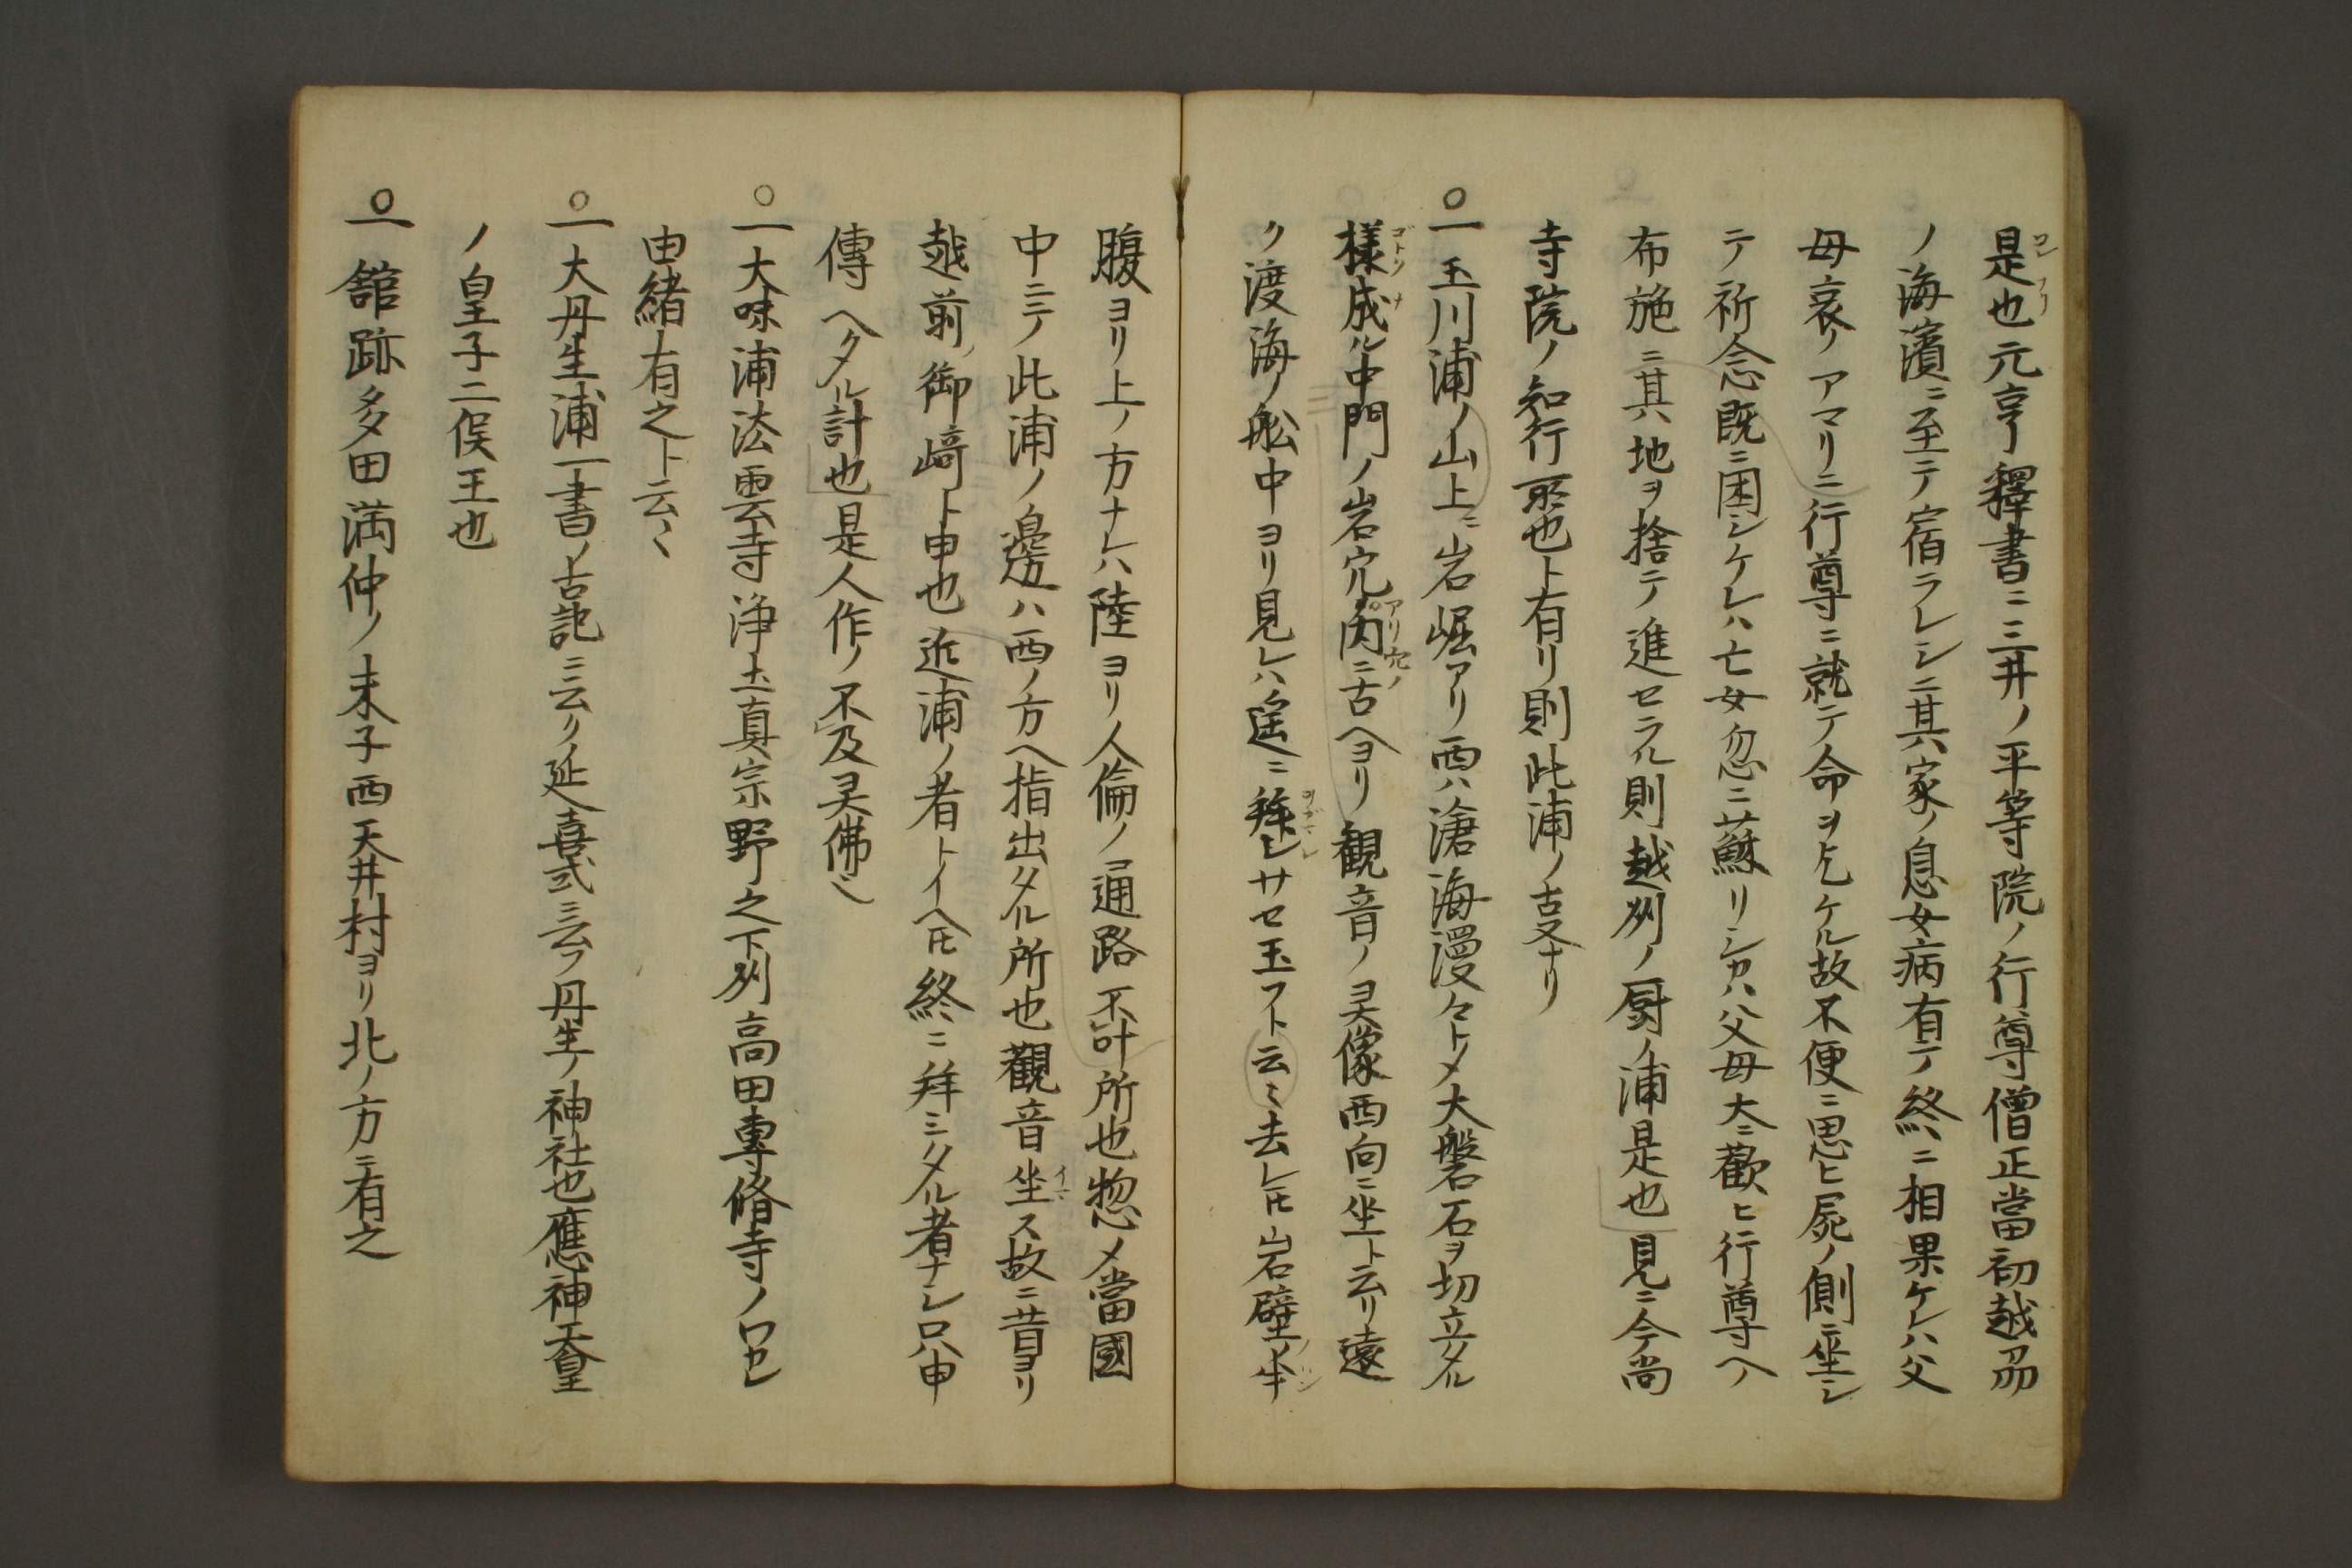 是也元亨釋書ニ三井ノ平等院ノ行尊僧正當初越刕
ノ海濱ニ至テ宿ラレシニ其家ノ息女病有テ終ニ相果ケレハ父
母哀ノアマリニ行尊ニ就テ命ヲ乞ケル故不便ニ思ヒ屍ノ側ニ坐シ
テ祈念既ニ困シケレハ亡女忽ニ蘇リシカハ父母大ニ歡ヒ行尊ヘノ
布施ニ其地ヲ捨テ進セラル則越刕ノ厨ノ浦是也見ニ今尚
寺院ノ知行所也ト有リ則此浦ノ古叓ナリ
○一玉川浦ノ山上ニ岩崛アリ西ハ滄海漫々トメ大盤石ヲ切立タル
様成ル中門ノ岩穴内ニ古ヘヨリ観音ノ灵像西向ニ坐ト云リ遠
ク渡海ノ舩中ヨリ見レハ遥ニ拜レサセ玉フト云ミ去レ𪜈岩壁ノ半
腹ヨリ上ノ方ナレハ陸ヨリ人倫ノ通路不叶所也惣メ當國
中ニテ此浦ノ邊ハ西ノ方ヘ指出タル所也觀音坐ス故ニ昔ヨリ
越前ノ御﨑ト申也近浦ノ者トイヘ𪜈終ニ拜ミタル者ナシ只申
傳ヘタル計也是人作ノ不及灵佛也
○一大味浦法雲寺浄土真宗野之下刕高田專脩寺ノ
由緒有之ト云〻
○一大丹生浦一書ノ古記ニ云ク延喜式ニ云フ丹生ノ神社也應神天皇
ノ皇子二俣王也
○一舘跡多田満仲ノ末子西天井村ヨリ北ノ方ニ有之